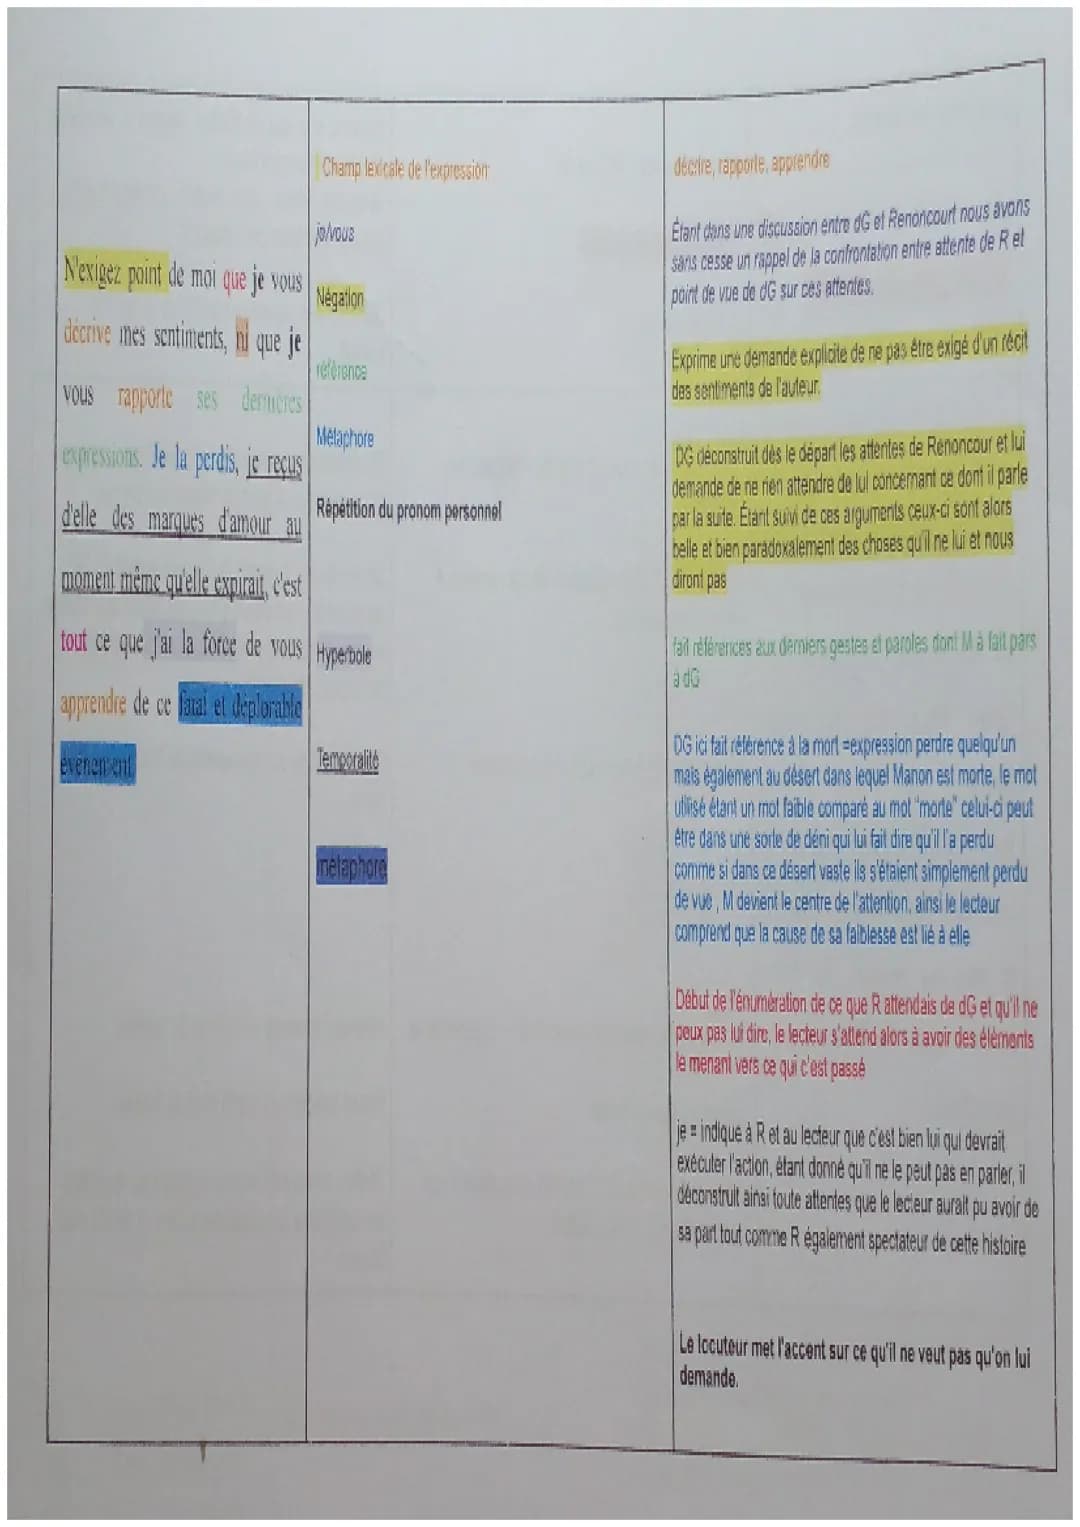 N'exigez point de moi que je vous
décrive mes sentiments, ni que je
vous rapporte ses dernières
expressions. Je la perdis, je reçus
d'elle des marques d'amour au
moment même qu'elle expirait, c'est
tout ce que j'ai la force de vous
apprendre de ce fatal et déplorable
événement
Champ lexicale de l'expression
je/vous
Négation
référence
Métaphore
Répétition du pronom personnel
Hyperbole
Temporalité
métaphore
décrire, rapporte, apprendre
Étant dans une discussion entre dG et Renoncourt nous avons
sans cesse un rappel de la confrontation entre attente de R et
point de vue de dG sur ces attentes.
Exprime une demande explicite de ne pas être exigé d'un récit
des sentiments de l'auteur.
DG déconstruit dès le départ les attentes de Renoncour et lui
demande de ne rien attendre de lui concernant ce dont il parle
par la suite. Étant suivi de ces arguments ceux-ci sont alors
belle et bien paradoxalement des choses qu'il ne lui et nous
diront pas
fait références aux derniers gestes et paroles dont M à fait pars
à dG
DG ici fait référence à la mort =expression perdre quelqu'un
mais également au désert dans lequel Manon est morte, le mot
utilisé étant un mot faible comparé au mot "morte" celui-ci peut
être dans une sorte de déni qui lui fait dire qu'il l'a perdu
comme si dans ce désert vaste ils s'étaient simplement perdu
de vue , M devient le centre de l'attention, ainsi le lecteur
comprend que la cause de sa faiblesse est lié à elle
Début de l'énumération de ce que R attendais de dG et qu'il ne
peux pas lui dire, le lecteur s'attend alors à avoir des éléments
le menant vers ce qui c'est passé
je = indique à R et au lecteur que c'est bien lui qui devrait
exécuter l'action, étant donné qu'il ne le peut pas en parler, il
déconstruit ainsi toute attentes que le lecteur aurait pu avoir de
sa part tout comme R également spectateur de cette histoire
Le locuteur met l'accent sur ce qu'il ne veut pas qu'on lui
demande.